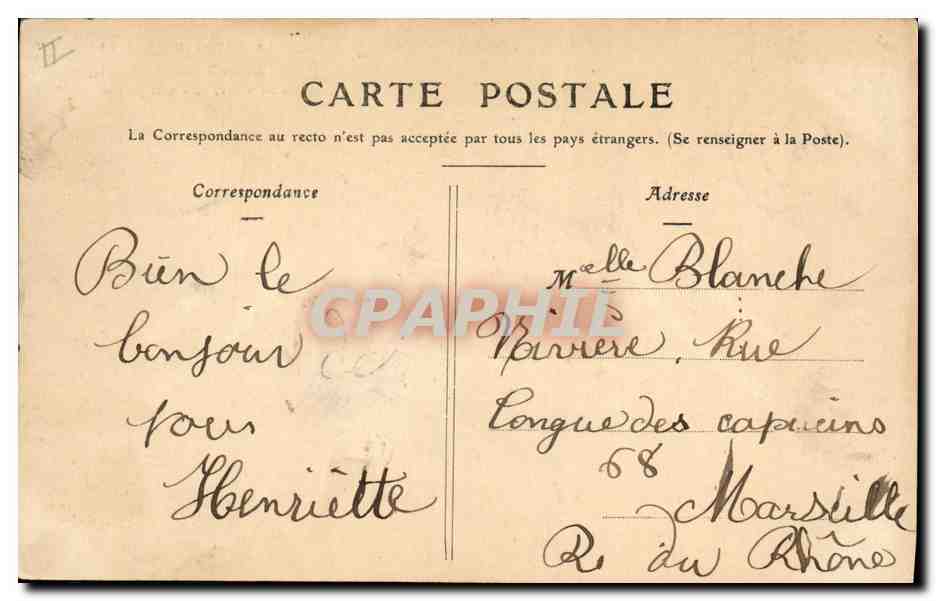 II
CARTE POSTALE
La Correspondance au recto n'est pas acceptée par tous les pays étrangers. (Se renseigner à la Poste).
Correspondance
Bien le
bonjour
Henriette
Adresse
Melle Blanche
Rue
Longue des capucins
68
Marseille
R. du Rhône
CPAPHIL